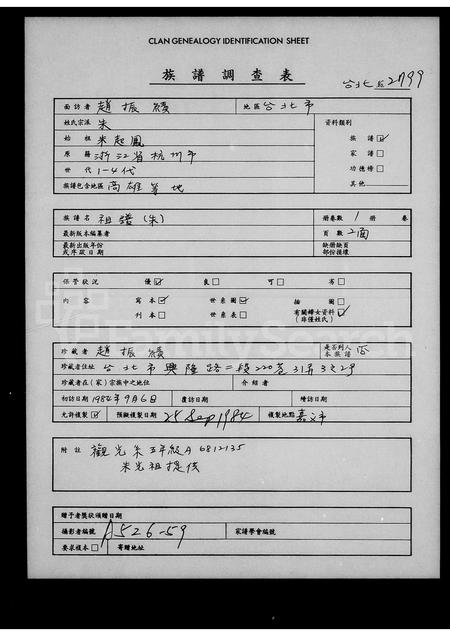 CLAN GENEALOGY IDENTIFICATION SHEET
族譜調查表
台北 2799
面訪者 趙振績 地區 台北市
姓氏宗派 朱 資料類別
始祖 朱起鳳 族譜 ☑
原籍 浙江省杭州市 家譜 □
世代 1-4代 功德榜 □
族譜包含地區 高雄等地 其他
族譜名 祖譜(朱) 冊卷數 1 冊 卷
最新版本編纂者 頁數 2面
最新出版年份 缺冊缺頁
或序跋日期 部份損壞
保管狀況 優 ☑ 良 □ 可 □ 劣 □
內容 寫本 ☑ 世系圖 ☑ 插圖 □
刊本 □ 世系表 □ 有關婦女資料 ☑
(非僅姓氏)
FamilySearch
珍藏者 趙振績 是否列入本族譜 否
珍藏者住址 台北市興隆路二段220巷31弄3之2号
珍藏者在(家)宗族中之地位 介紹者
初訪日期 1984年9月6日 覆訪日期 續訪日期
允許複製 ☑ 預擬複製日期 25 Sep 1984 複製地點 嘉文市
附註 觀光系五年級A 6812135
朱光祖提供
贈予者獎狀頒贈日期
攝影者編號 A526-59 家譜學會編號
要求複本 □ 寄贈地址